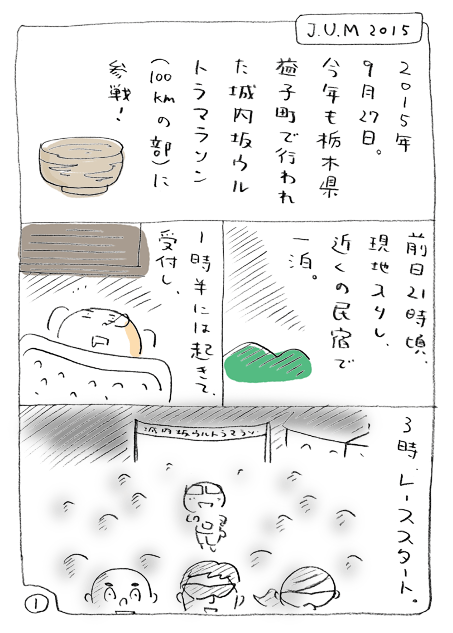 J.U.M 2015
2015年
9月27日。
今年も栃木県
益子町で行われ
た城内坂ウル
トラマラソン
(100kmの部)に
参戦！
前日21時頃、
現地入りし、
近くの民宿で
一泊。
1時半には起きて、
受付し、
3時、レーススタート。
城内坂ウルトラマラソン
1